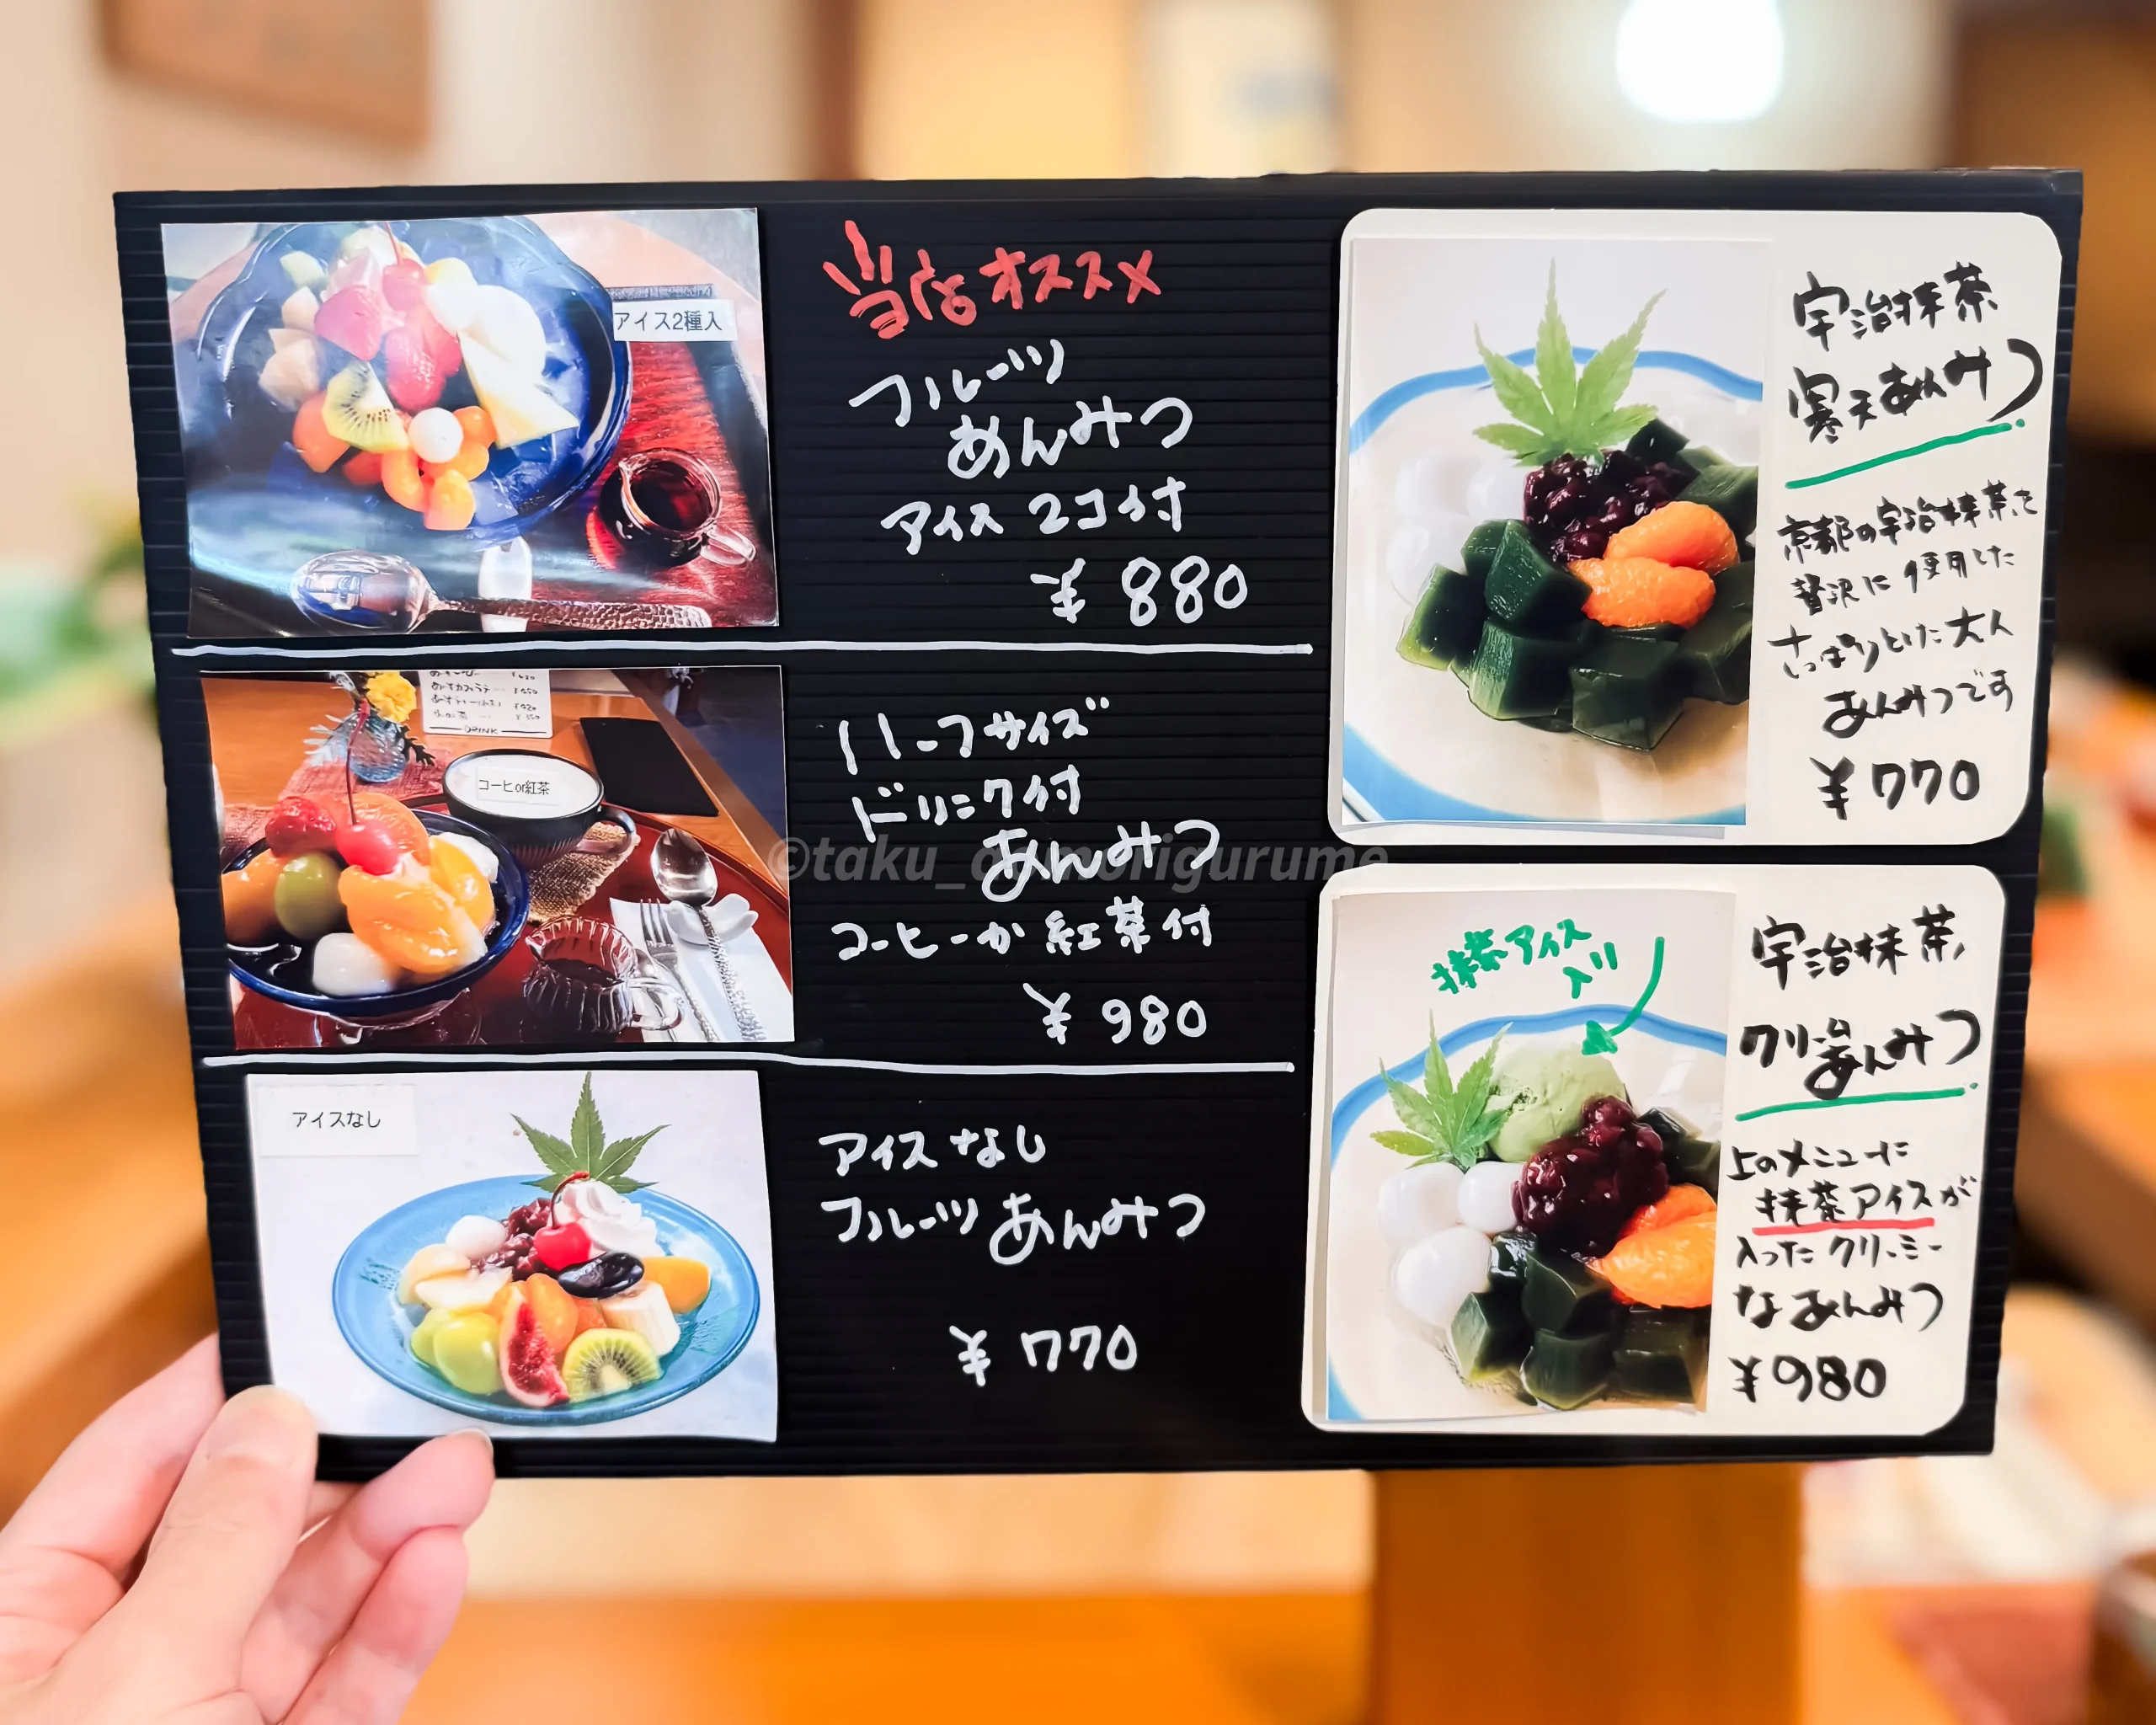 アイス2種入
当店オススメ
フルーツ
あんみつ
アイス 2コ付
¥880
コーヒor紅茶
DRINK
ハーフサイズ
ドリンク付
あんみつ
コーヒーか紅茶付
¥980
アイスなし
アイスなし
フルーツあんみつ
¥770
宇治抹茶
寒天あんみつ
京都の宇治抹茶を
贅沢に使用した
さっぱりとした大人
あんみつです
¥770
抹茶アイス
入り
宇治抹茶
クリームあんみつ
上のメニューに
抹茶アイスが
入ったクリーミー
なあんみつ
¥980